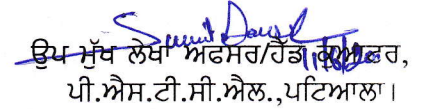 ਉਪ ਮੁੱਖ ਲੇਖਾ ਅਫਸਰ/ਹੈੱਡ ਕੁਆਟਰ,
ਪੀ.ਐਸ.ਟੀ.ਸੀ.ਐਲ.,ਪਟਿਆਲਾ।